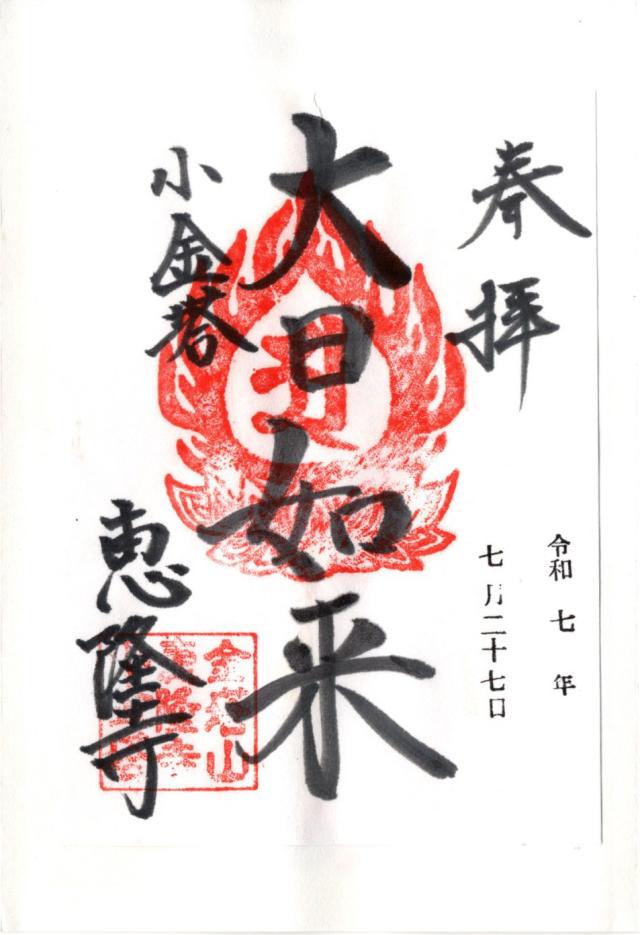 奉拝
令和七年
七月二十七日
大日如来
小金塔
恵隆寺
金塔山
恵隆寺